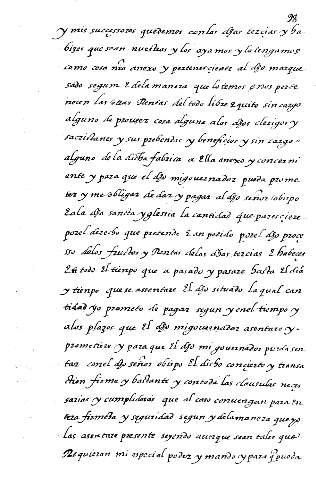 98
y mis sucessores quedemos con las dhas tercias y ha
bizes que sean nuestras y los ayamos y lo tengamos
como cosa nra anexo y perteneçiente al dho marque
sado segum E dela manera que lo temos o nos perte
necen las otras Rentas del todo libre E quito sin cargo
alguno de proveer cosa alguna a los dhos clerigos y
sacristanes y sus prebendas y benefiçios y sin cargo
alguno de la dicha fabrica a Ella anexo y conçerni
ente y para que el dho mi governador pueda prome
ter y me obligar de dar y pagar al dho señor obispo
E a la dha sancta yglesia la cantidad que paresçiere
por el derecho que pretende E an pedido por el dho proçe
sso de los fructos y Rentas de las dhas tercias E habizes
En todo El tienpo que a pasado y pasare hasta El dia
y tienpo que se asentare El dho situado la qual can
tidad yo prometo de pagar segun y en el tienpo y
a los plazos que El dho mi governador asentare y
prometiere y para que El dho mi governador pueda sen
tar con el dho señor obispo El dicho conçierto y transa
çion firme y bastante y con todas las clausulas neçe
sarias y cumplideras que al caso convengan para su
entera firmeza y seguridad segun y de la manera que yo
las asentare presente seyendo aunque sean tales que
Requieran mi espeçial poder y mando y para q̃ pueda